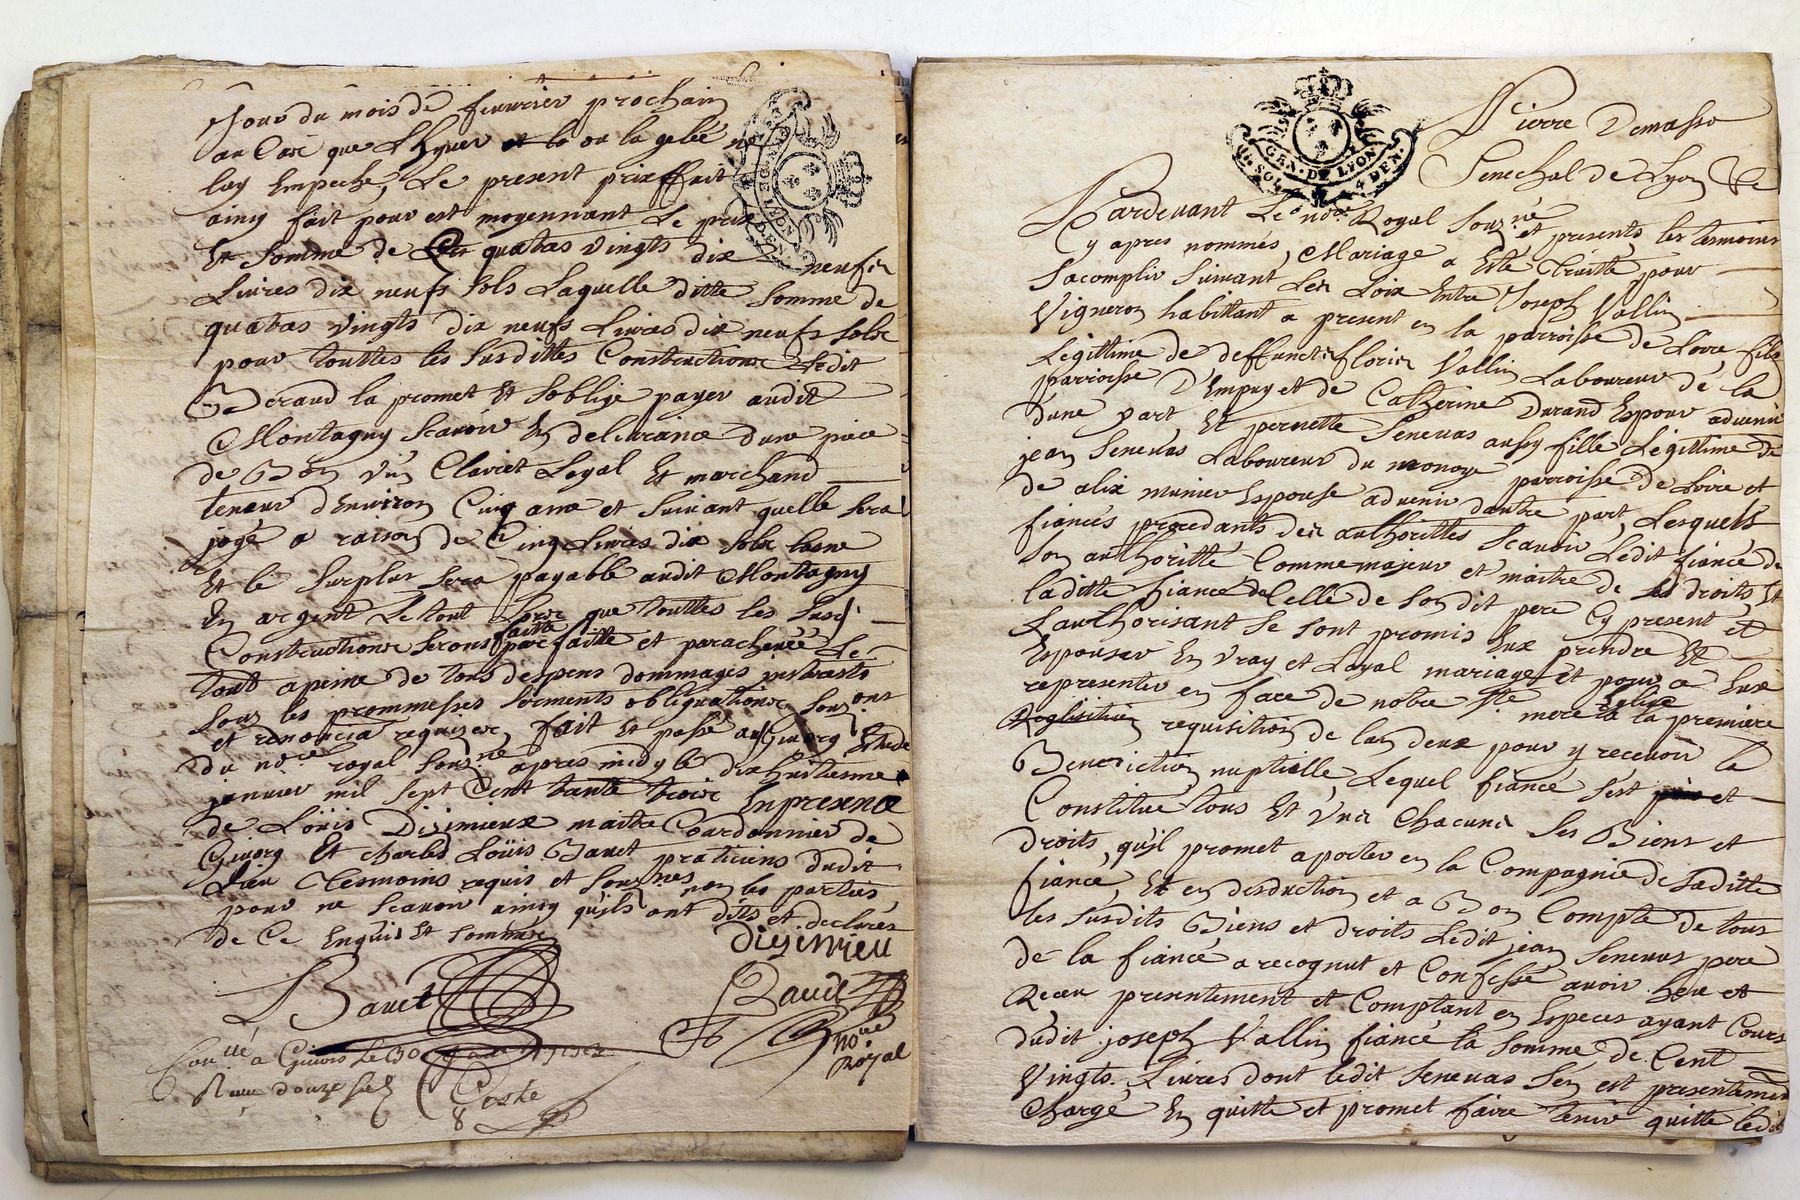 Jour du mois de feuvrier prochain
au Cas que Lhyver et la ou la gelée ne
luy Empeche, Le present prixffait
ainsy fait pour est moyennant Le prix
Et Somme de quatas vingts dix neufs
Livres dix neufs sols Laquelle ditte Somme de
quatas vingts dix neufs Livres dix neufs sols
pour touttes les Susdittes Constructions Ledit
Beraud la promet Et Soblige payer audit
Montagny Scavoir En delivrance dune piece
de Bon vin Clairet Loyal Et marchand
teneur d'Environ Cinq ane et Suivant quelle Sera
jogé a raison de Cinq Livres dix Sols lasne
Et le Surplus Sera payable audit Montagny
En argent Le tout Lors que touttes les Susd
Constructions Serons faitte parfaitte et parachevée Le
tout a peine de tous despens dommages interests
Sous les prommesses Serments obligations Soumons
et renoncia requises, fait Et passé a Givorg Etude
du nore royal Souzné apres midy le dix huitiesme
janvier mil Sept Cent trante trois En presence
de Loüis Dizimieux maitre Courdonnier de
Givorg Et Charles Loüis Bauet praticiens dudit
Lieu Tesmoins requis et Souznes non les parties
pour ne Scavoir ainsy quils ont dits et declares
de Ce Enquis Et Sommés
diziMieu
Bauet
Baude
nore
Royal
Conllé a Givors Le 30
Receu douze sols
Coste
8
GEN. DE LYON
DEN.
Pierre Demasso
Senechal de Lyon
GEN. DE LYON
SOL
4 DEN.
Pardevant Le nore Royal Souzné et presents les tesmoins
y apres nommés, Mariage a Eté Traitté pour
Sacomplir Suivant Les Loix Entre Joseph Vallin
Vigneron habittant a present en la parroisse de Loire fils
Legittime de deffuncts floris Vallin Laboureur de la
parroisse D'Empuy et de Catherine Durand Espoux advenir
dune part Et pernette Senevas aussy fille Legittime de
jean Senevas Laboureur du monoye parroisse de Loire et
de alix munier Espouse advenir dautre part, Lesquels
fiancés procedants des authorittes Scavoir Ledit fiancé de
Son authoritté Comme majeur et maitre de Ses droits Et
laditte fiancé de Celle de Son dit pere Cy present et
Lauthorisant Se Sont promis Eux prendre Et
Espouser En vray et Loyal mariage Et pour a Eux
representer en face de notre Ste mere Eglise a la premiere
requisition de lun deux pour y recevoir la
Benediction nuptielle, Lequel fiancé s'est et
Constitué tous Et vns Chacuns Ses Biens et
droits, qu'jl promet aporter en la Compagnie de Saditte
fiancé, Et en desduction et a Bon Compte de tous
les Susdits Biens et droits Ledit jean Senevas pere
de la fiancé a recognut et Confessé avoir heu et
Receu presentement et Comptant en Especes ayant Cours
dudit joseph Vallin fiancé la Somme de Cent
Vingts Livres dont ledit Senevas S'en est presentement
Chargé En quitte et promet faire tenir quitte ledit